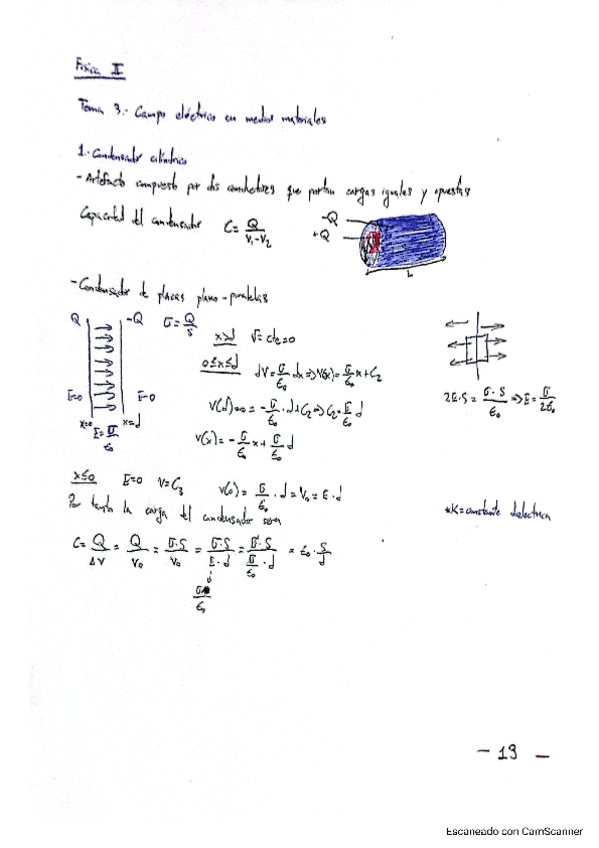 Física II
Tema 3.- Campo eléctrico en medios materiales
1.- Condensador cilíndrico
- Artefacto compuesto por dos conductores que portan cargas iguales y opuestas
Capacidad del condensador C = Q/(V₁-V₂)
-Q
+Q
L
- Condensador de placas plano-paralelas
Q -Q σ = Q/S
x>d V=cte=0
0≤x≤d dV = σ/ε₀ dx => V(x) = σ/ε₀ x + C₂
E=0 E=0
x=0 E = σ/ε₀ x=d
2E·S = σ·S/ε₀ => E = σ/2ε₀
V(d)=0 = -σ/ε₀ · d + C₂ => C₂ = σ/ε₀ d
V(x) = -σ/ε₀ x + σ/ε₀ d
x≤0 E=0 V=C₃ V(0) = σ/ε₀ · d = V₀ = E·d
Por tanto la carga del condensador será
*K=constante dieléctrica
C = Q/ΔV = Q/V₀ = σ·S/V₀ = σ·S/E·d = σ·S/(σ/ε₀ · d) = ε₀ · S/d
- 19 -
Escaneado con CamScanner